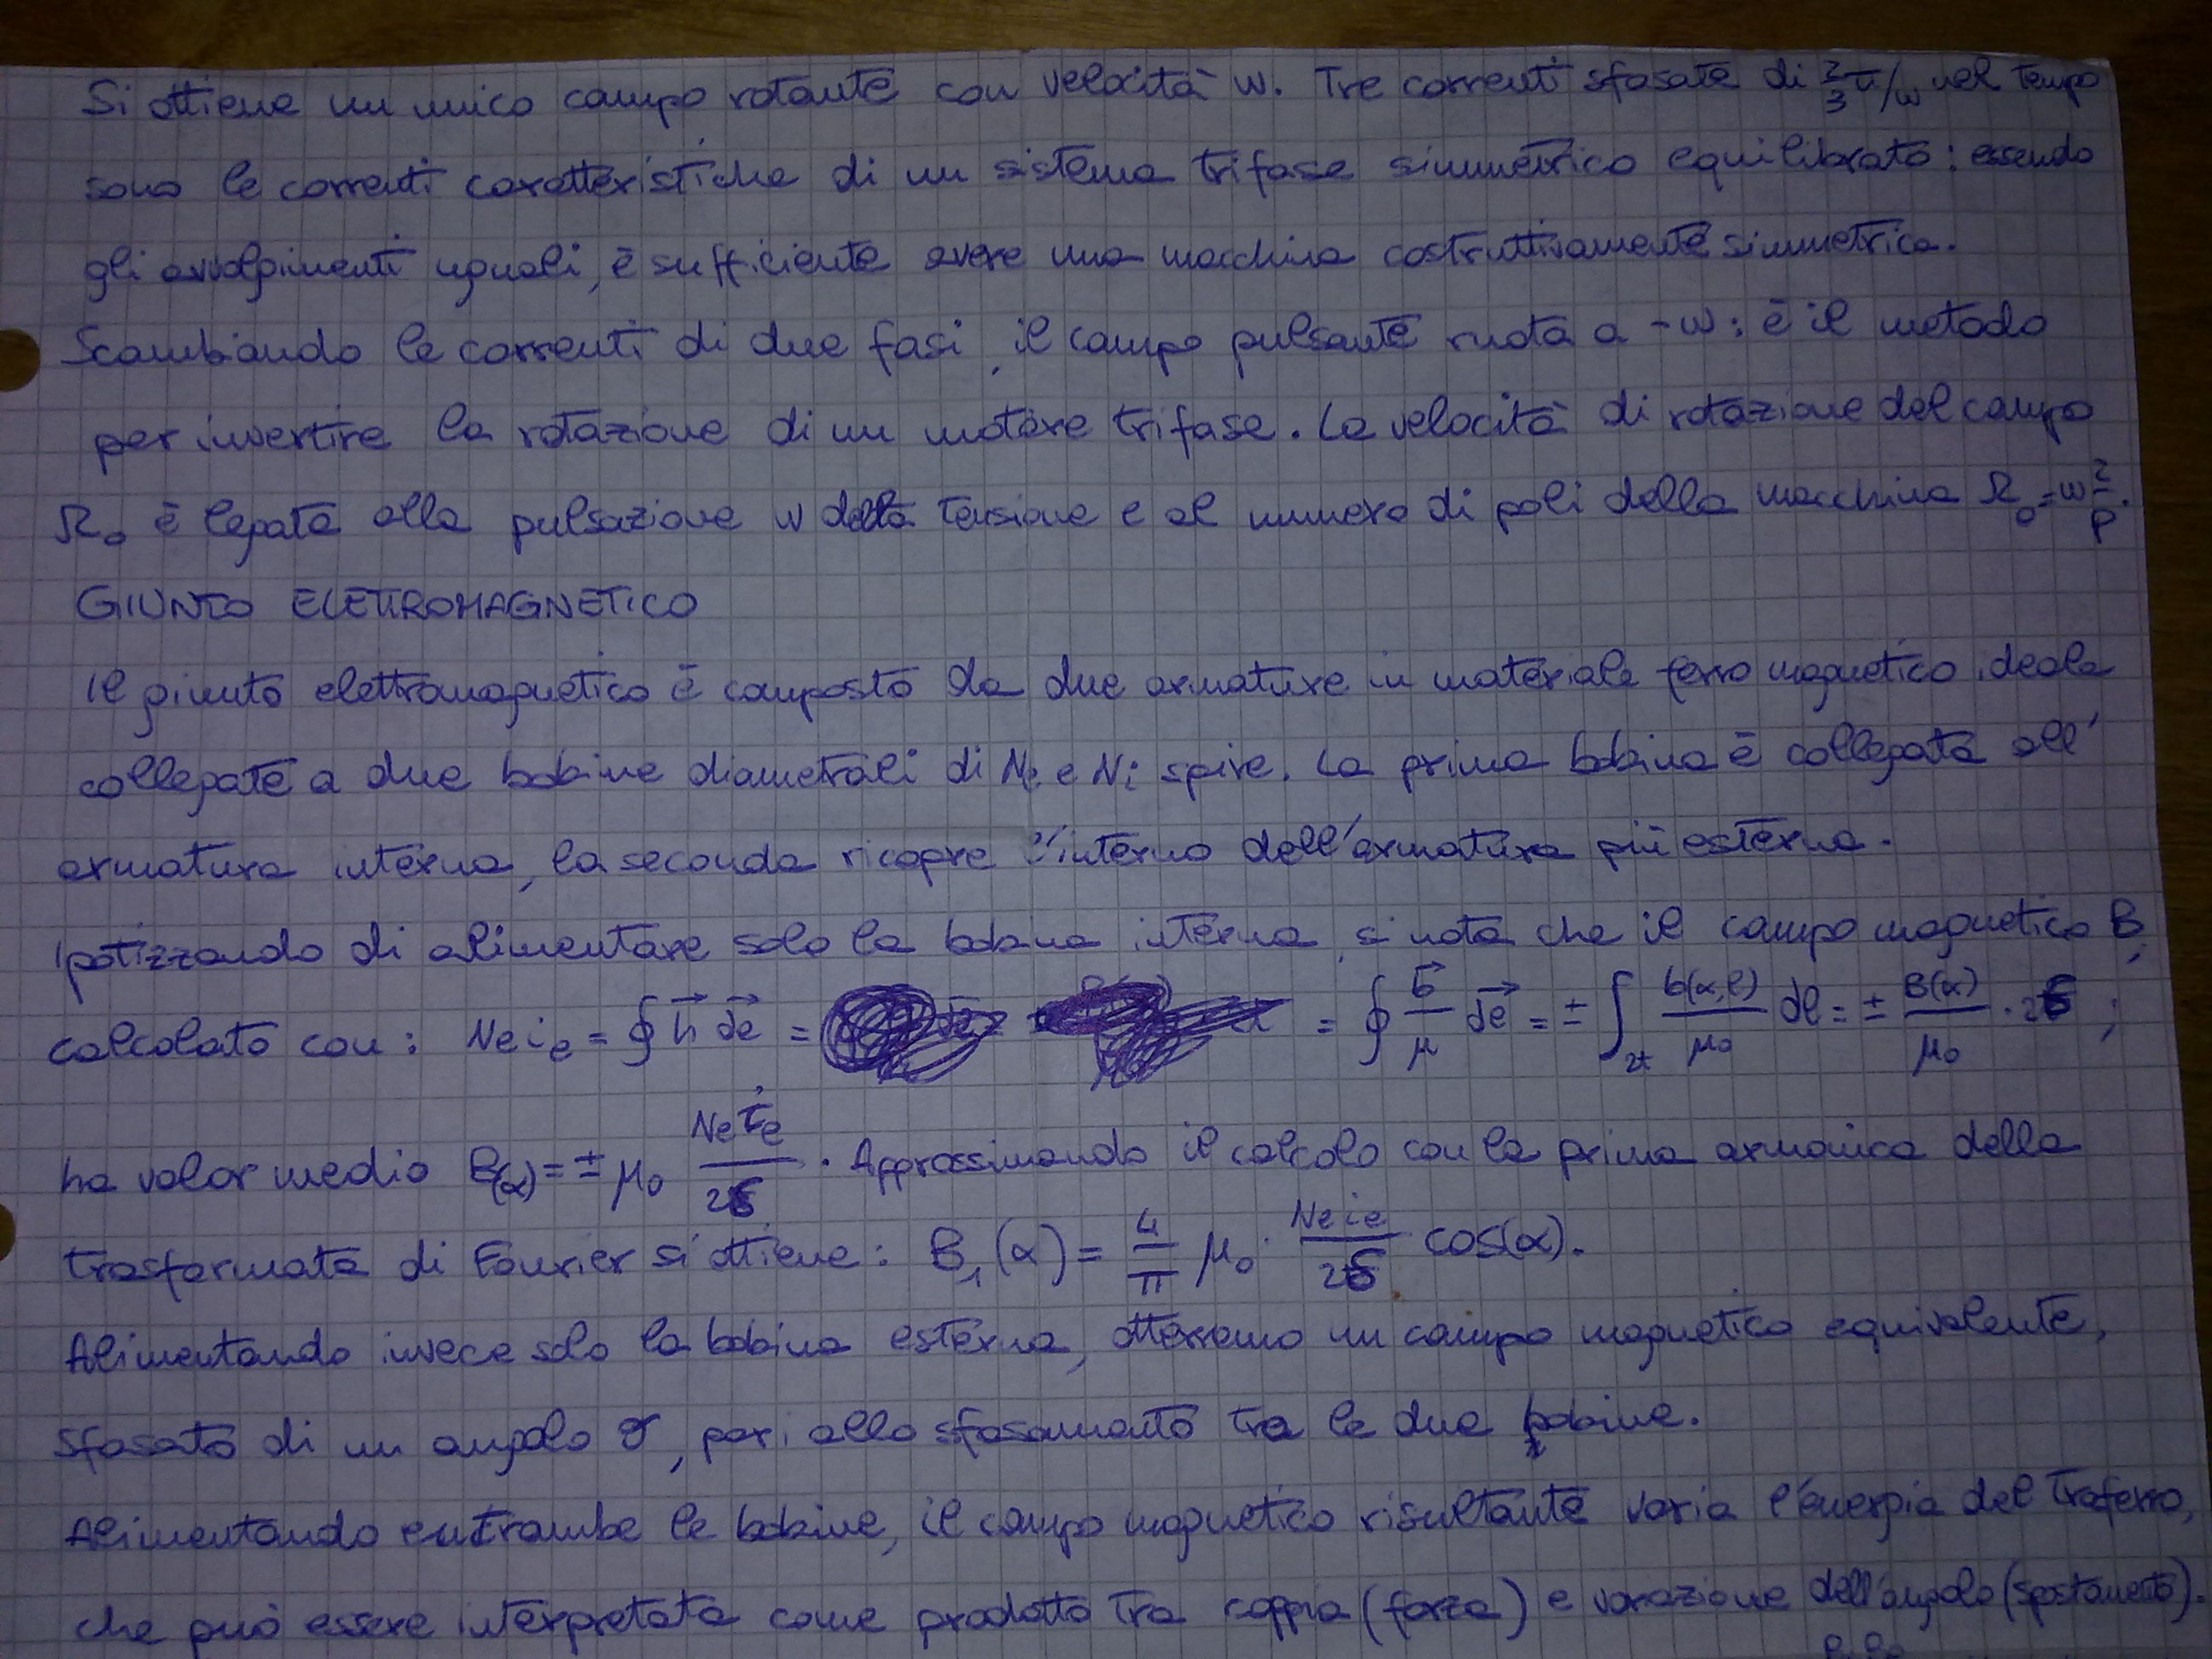 Si ottiene un unico campo rotante con velocità w. Tre correnti sfasate di 2/3 π/w nel tempo
sono le correnti caratteristiche di un sistema trifase simmetrico equilibrato: essendo
gli avvolgimenti uguali, è sufficiente avere una macchina costruttivamente simmetrica.
Scambiando le correnti di due fasi, il campo pulsante ruota a -w: è il metodo
per invertire la rotazione di un motore trifase. La velocità di rotazione del campo
Ω₀ è legata alla pulsazione w della tensione e al numero di poli della macchina Ω₀=w 2/p.
GIUNTO ELETTROMAGNETICO
Il giunto elettromagnetico è composto da due armature in materiale ferromagnetico ideale
collegate a due bobine diametrali di Ne e Ni spire. La prima bobina è collegata all'
armatura interna, la seconda ricopre l'interno dell'armatura più esterna.
Ipotizzando di alimentare solo la bobina interna, si nota che il campo magnetico B,
calcolato con: Ne ie = ∮ h⃗ dl⃗ = = ∮ b⃗/μ dl⃗ = ± ∫ b(α,l)/μ₀ dl = ± B(α)/μ₀ · 2δ ;
ha valor medio B(α) = ± μ₀ Ne ie/2δ . Approssimando il calcolo con la prima armonica della
trasformata di Fourier si ottiene: B₁(α) = 4/π μ₀ · Ne ie/2δ cos(α).
Alimentando invece solo la bobina esterna, otterremo un campo magnetico equivalente,
sfasato di un angolo γ, pari allo sfasamento tra le due bobine.
Alimentando entrambe le bobine, il campo magnetico risultante varia l'energia del traferro,
che può essere interpretata come prodotto tra coppia (forza) e variazione dell'angolo (spostamento).